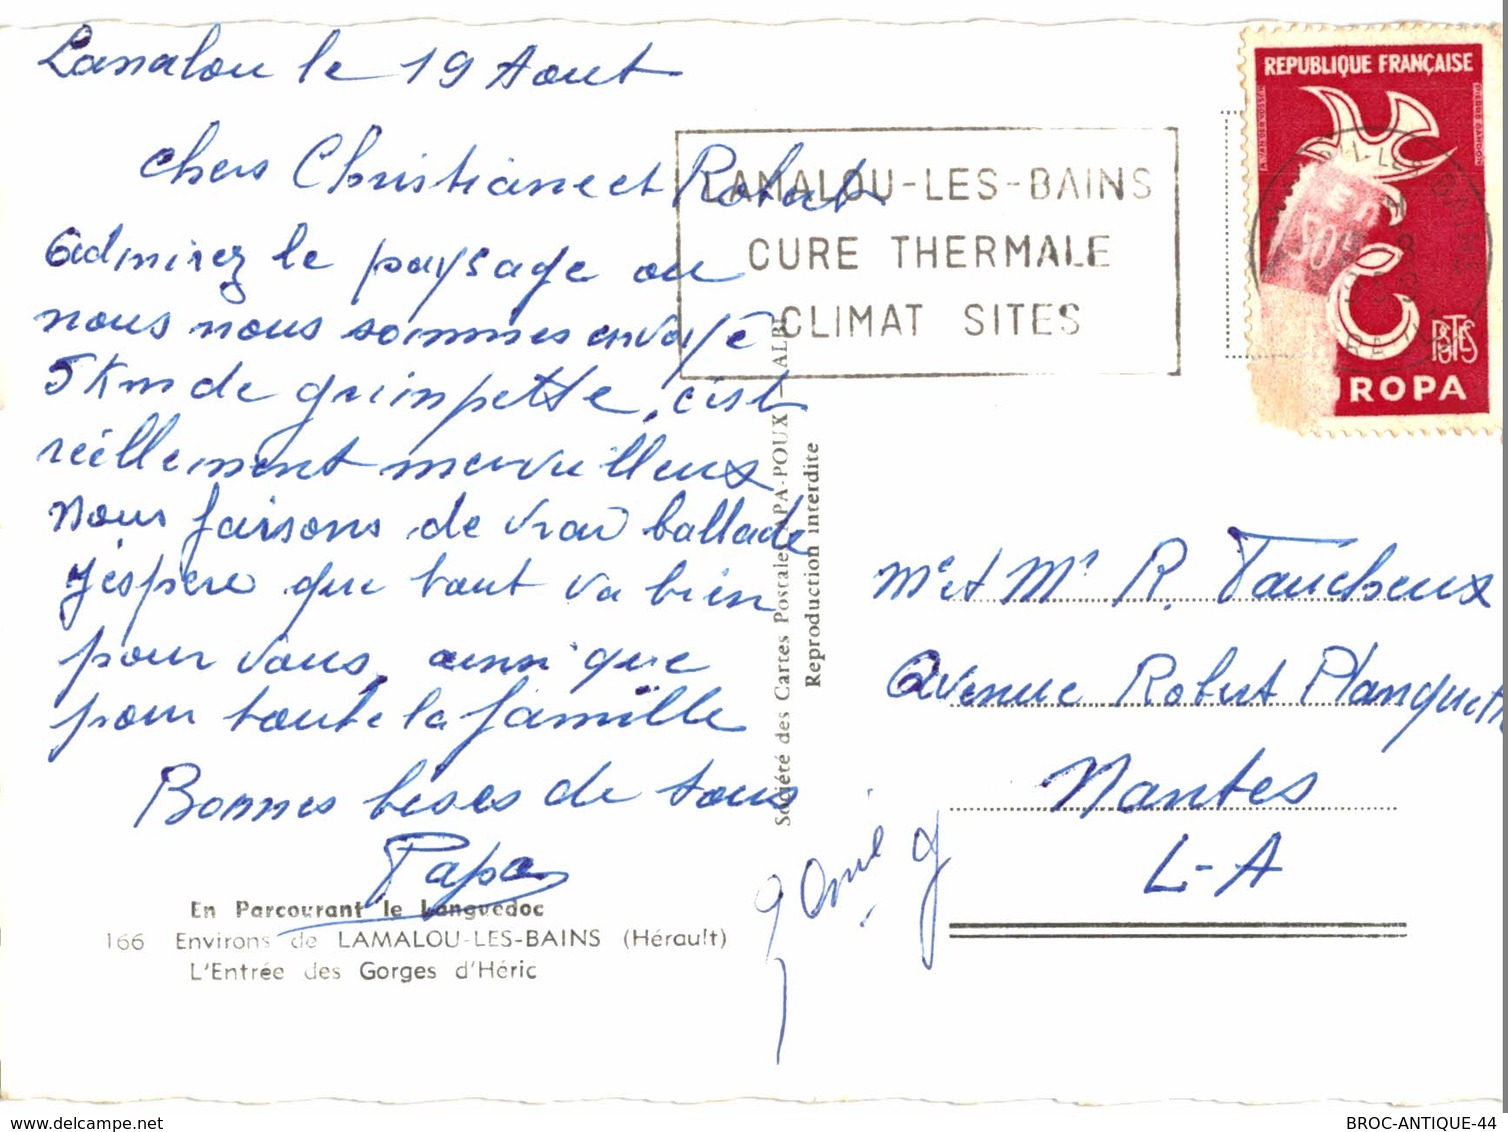 Lamalou le 19 Aout
chers Christiane et Robert
admirez le paysage ou
nous nous sommes envoyé
5 Km de grimpette, c'est
réellement merveilleux
Nous faisons de vrai ballade
J'espère que tout va bien
pour vous, ainsi que
pour toute la famille
Bonnes bises de tous
Papa
En Parcourant le Languedoc
166 Environs de LAMALOU-LES-BAINS (Hérault)
L'Entrée des Gorges d'Héric
LAMALOU-LES-BAINS
CURE THERMALE
CLIMAT SITES
Société des Cartes Postales APA-POUX - ALBI
Reproduction interdite
REPUBLIQUE FRANÇAISE
POSTES
UROPA
Me et Mr R. Taucheux
Avenue Robert Planquett
Nantes
L-A
www.delcampe.net
BROC-ANTIQUE-44